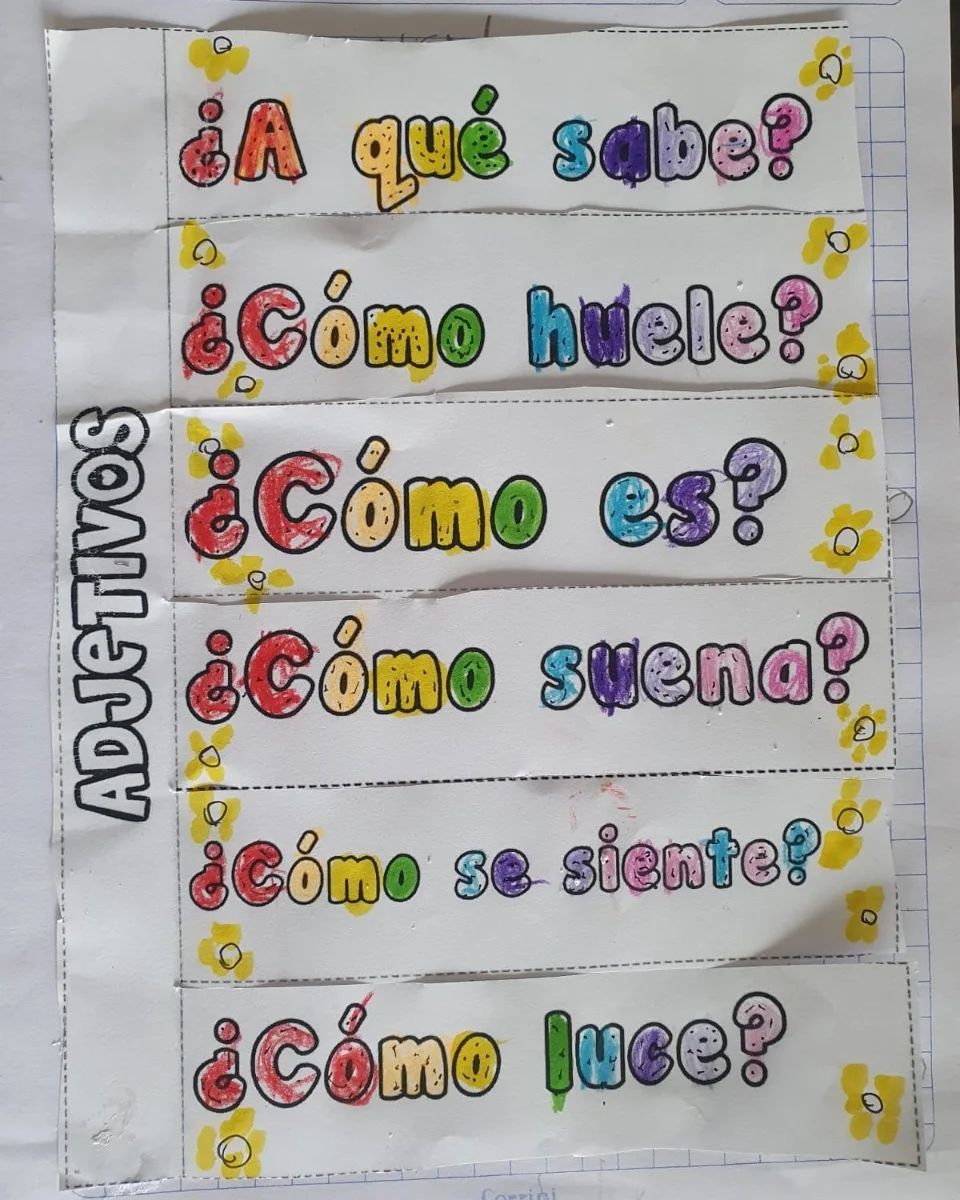 ¿A qué sabe?
¿Cómo huele?
ADJeTIVOS
¿Cómo es?
¿Cómo suena?
¿Cómo se siente?
¿Cómo luce?
Corrini